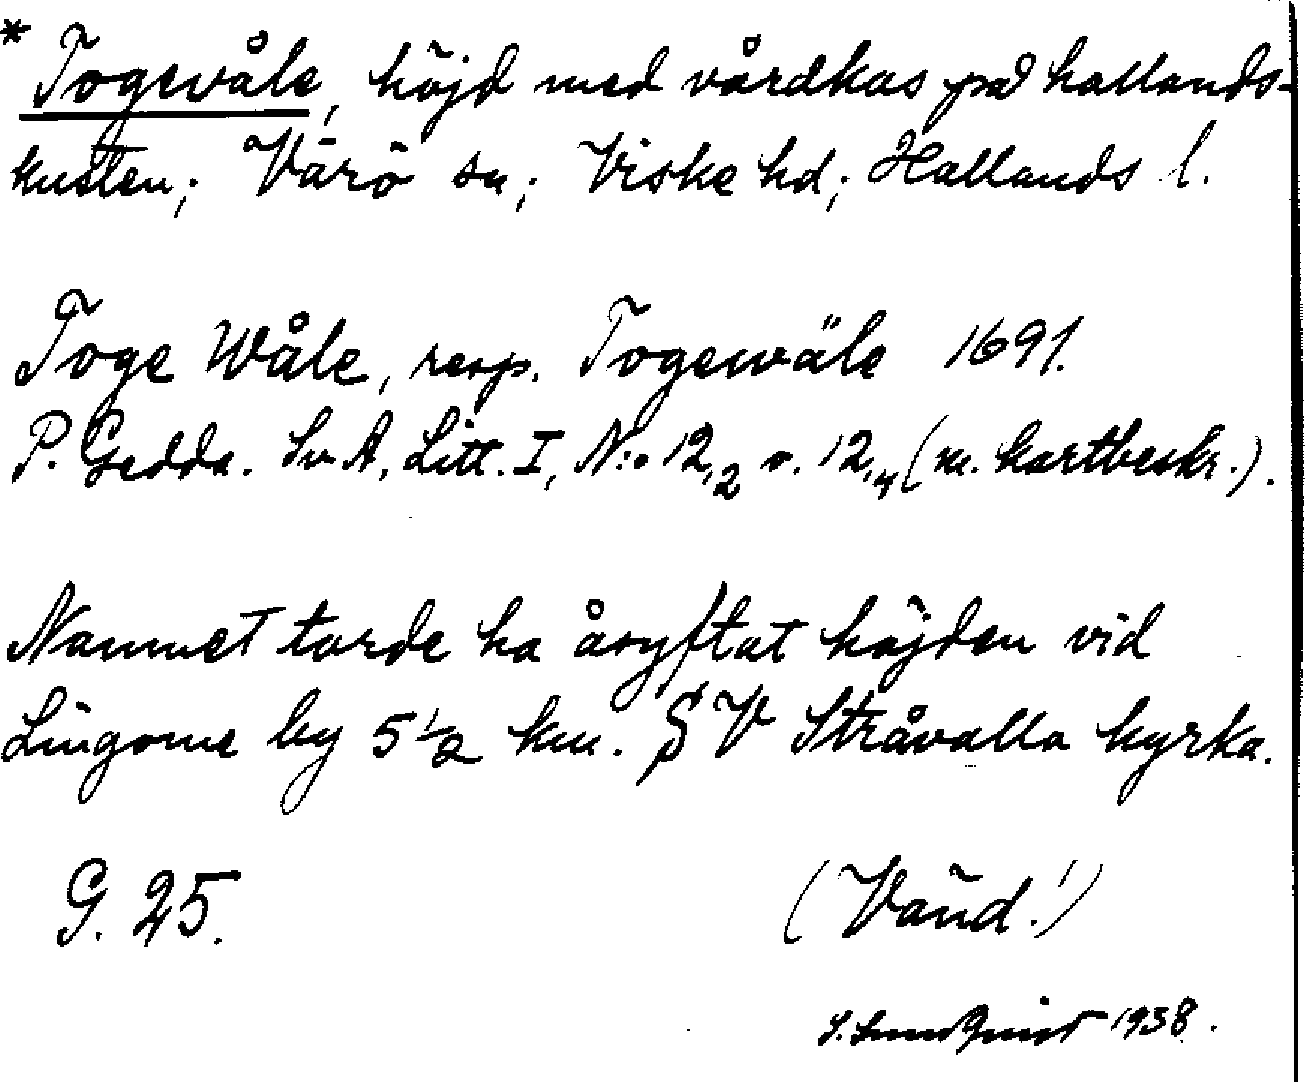 * Togevåle, höjd med vårdkas på hallands-
kusten; Värö sn; Viske hd; Hallands l.
Toge Wåle, resp. Togewäle 1691.
P. Gedda. Sv. A, Litt. I, N:o 12,2 o. 12,4 (m. kartbeskr.).
Namnet torde ha åsyftat höjden vid
Lingome by 5 1/2 km. SV Stråvalla kyrka.
G. 25. (Vänd!)
S. Lundquist 1938.